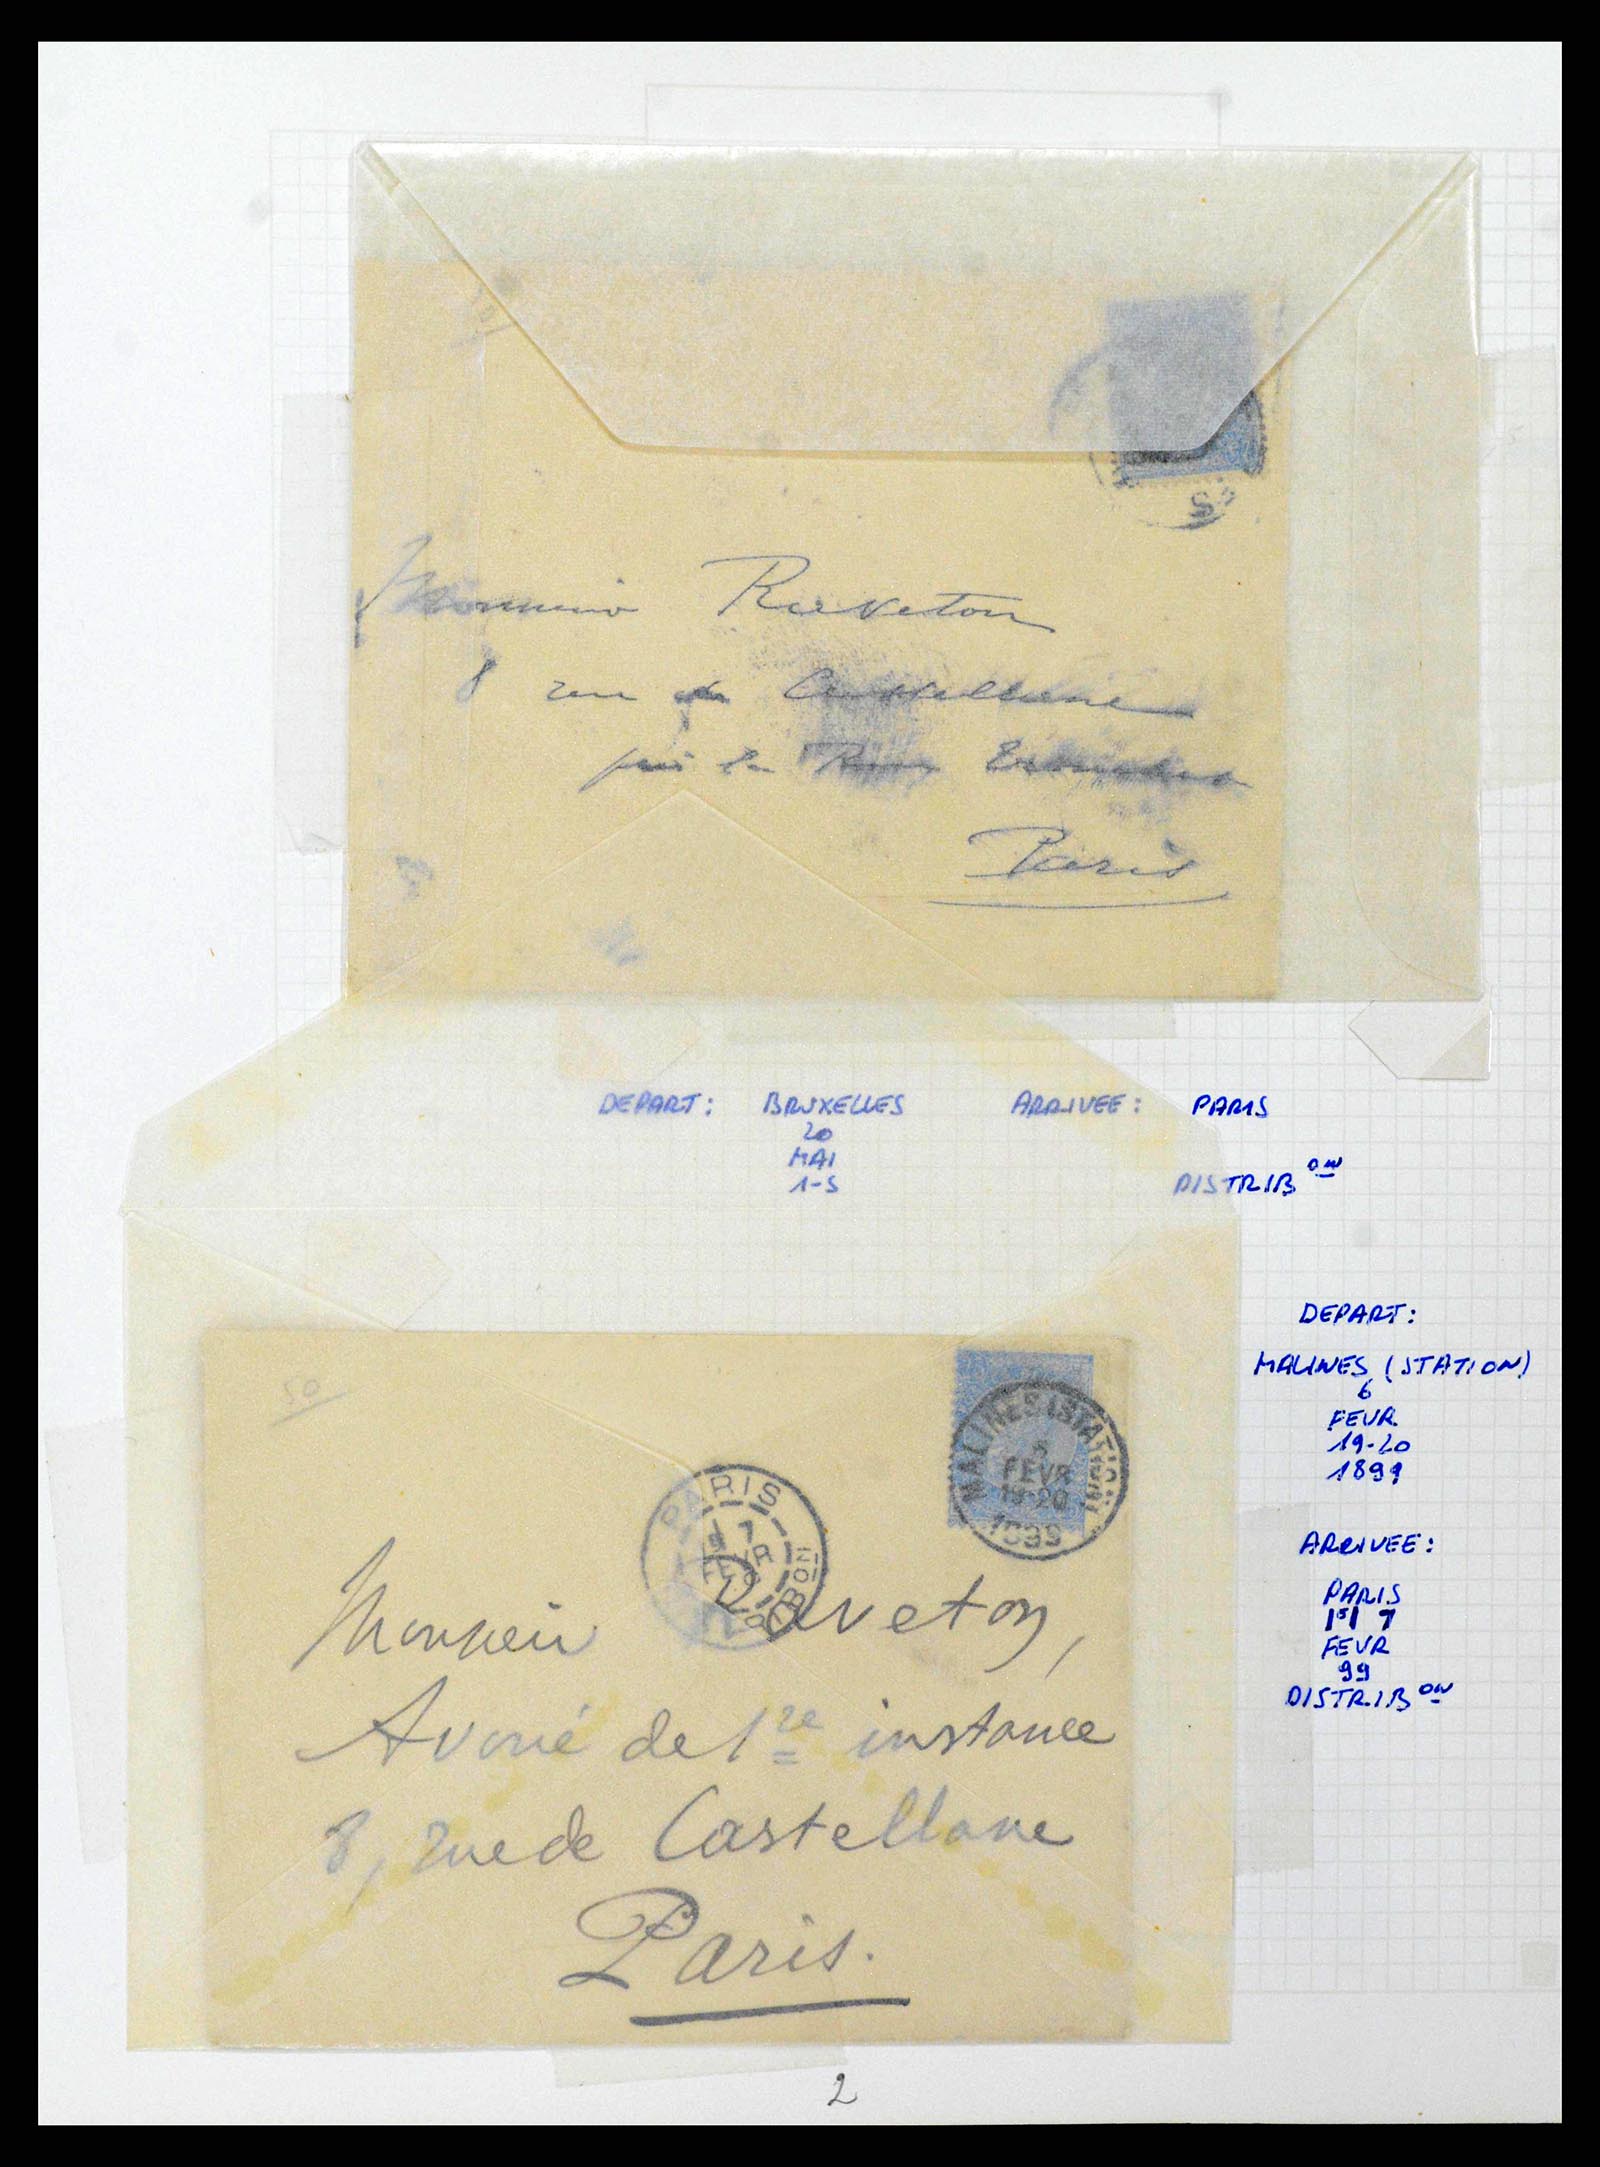 Monsieur Raveton
8 rue de Castellane
près la Rue Tronchet
Paris
DEPART: BRUXELLES ARRIVEE: PARIS
20
MAI
1-S DISTRIB ON
DEPART:
MALINES (STATION)
6
FEVR.
19-20
1899
ARRIVEE:
PARIS
1 5/ 7
FEVR
99
DISTRIB ON
50
MALINES (STATION)
FEVR
19-20
1899
PARIS
7
DISTRIBION
Monsieur Raveton,
Avoué de 1re instance
8, rue de Castellane
Paris.
2